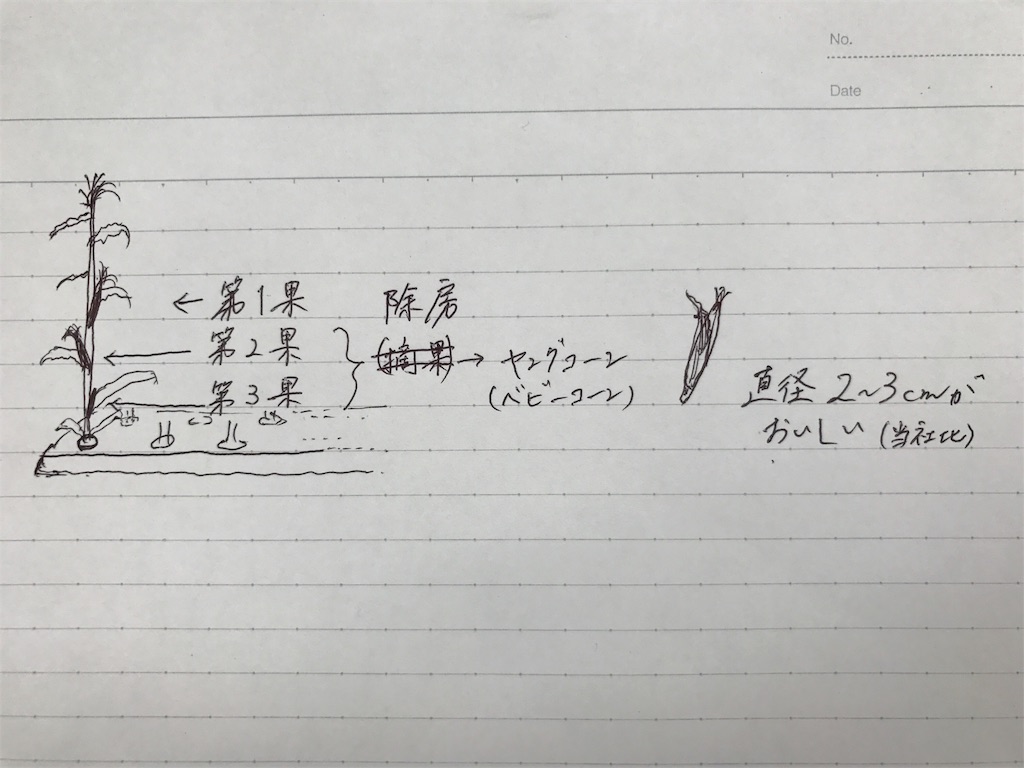 No.
Date
← 第1果
除房
← 第2果
(摘果) → ヤングコーン
← 第3果
(ベビーコーン)
直径 2~3cmが
おいしい (当社比)